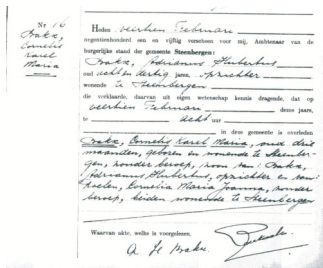 Nr 16
Brakx,
Cornelis
Karel
Maria
Heden veertien Februari
negentienhonderd een en vijftig verscheen voor mij, Ambtenaar van de
burgerlijke stand der gemeente Steenbergen:
Brakx, Adrianus Hubertus,
oud acht en dertig jaren, opzichter
wonende te Steenbergen
die verklaarde, daarvan uit eigen wetenschap kennis dragende, dat op
veertien Februari dezes jaars,
te acht uur
in deze gemeente is overleden
Brakx, Cornelis Karel Maria, oud drie
maanden, geboren en wonende te Steenber-
gen, zonder beroep, zoon van Brakx,
Adrianus Hubertus, opzichter en van
Roelen, Cornelia Maria Joanna, zonder
beroep, beiden wonende te Steenbergen
Waarvan akte, welke is voorgelezen.
A. H. Brakx